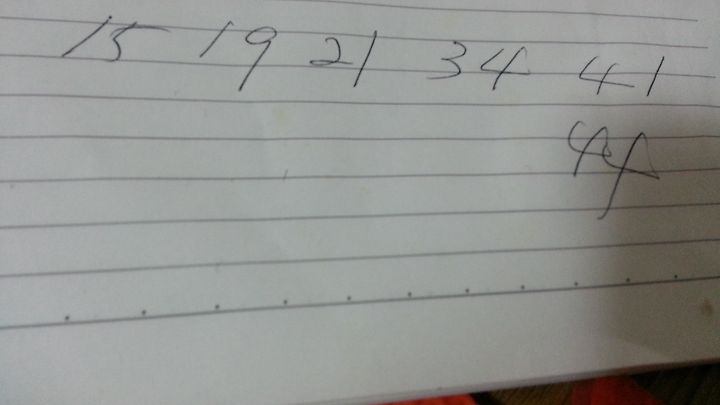 15 19 21 34 41
44